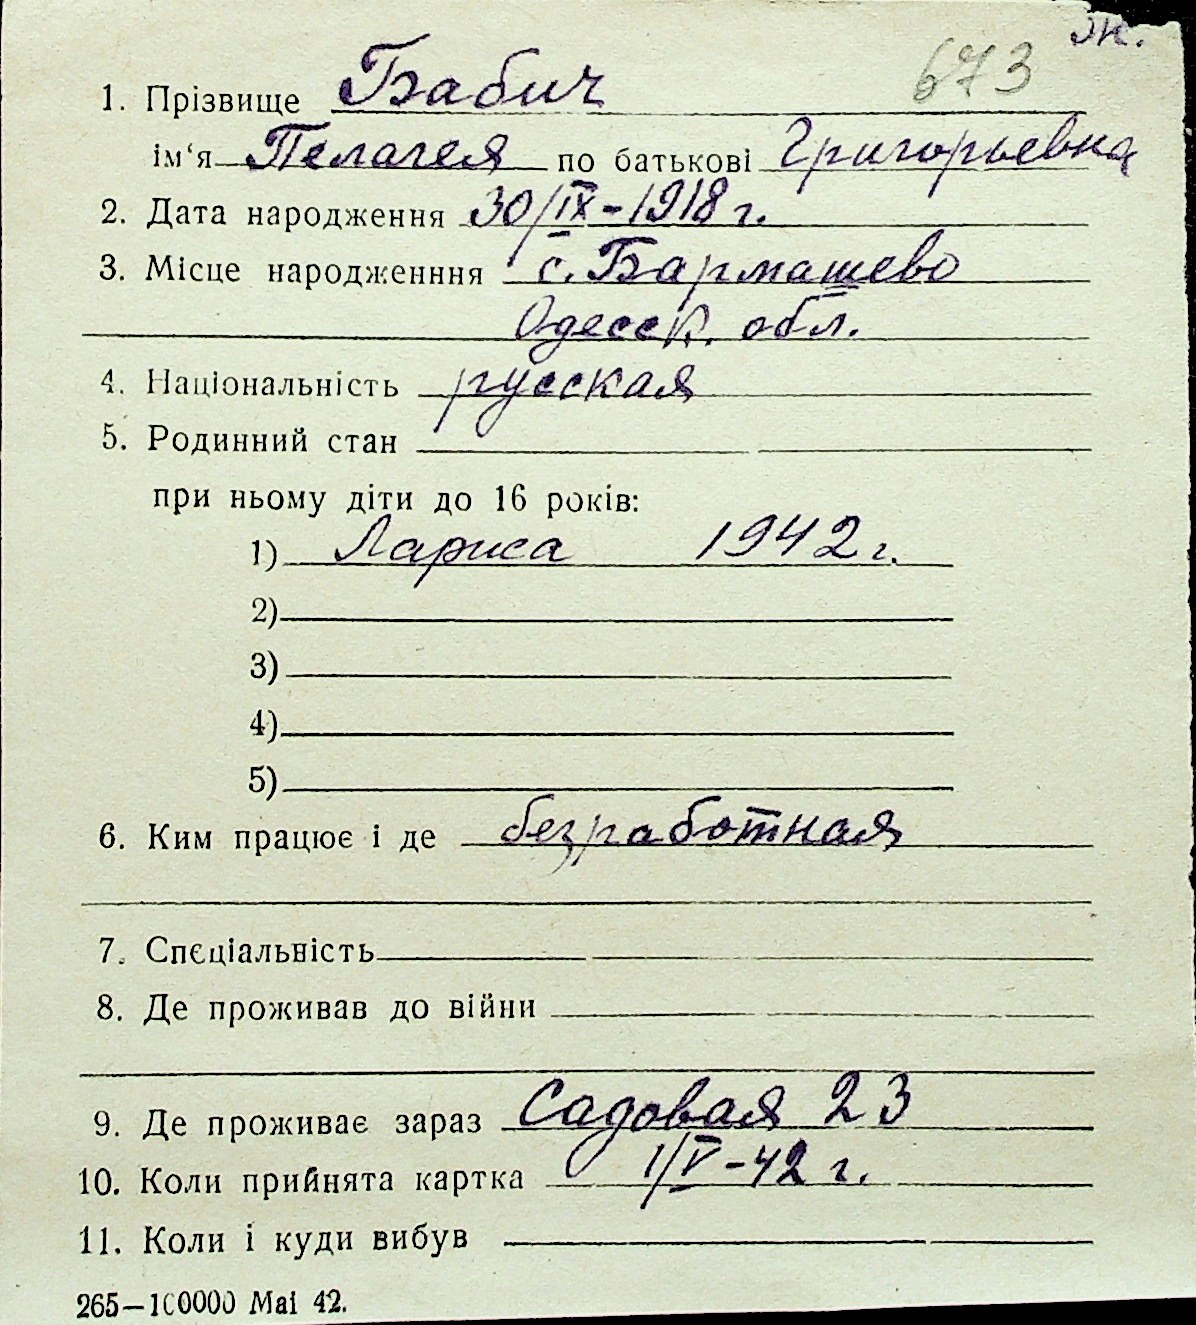 ж.
673
1. Прізвище Бабич
ім‘я Пелагея по батькові Григорьевна
2. Дата народження 30/IX-1918 г.
3. Місце народженння с. Бармашево
Одесск. обл.
4. Національність русская
5. Родинний стан
при ньому діти до 16 років:
1) Лариса 1942 г.
2)
3)
4)
5)
6. Ким працює і де безработная
7. Спєціальність
8. Де проживав до війни
9. Де проживає зараз Садовая 23
10. Коли прийнята картка 1/V-42 г.
11. Коли і куди вибув
265—100000 Mai 42.